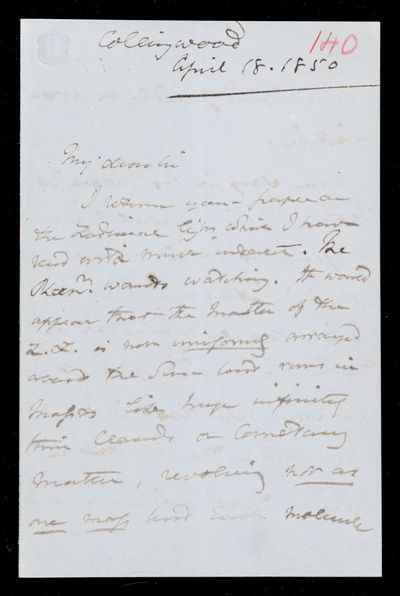 Collingwood
140
April 18. 1850
My dear Sir
I return your paper on
the Zodiacal light which I have
read with much interest. The
Phenn. wants watching. It would
appear that the matter of the
Z.L. is not uniformly arranged
round the Sun but runs in
masses like huge infinitely
thin Clouds or Cometary
matter, revolving not as
one mass but each molecule